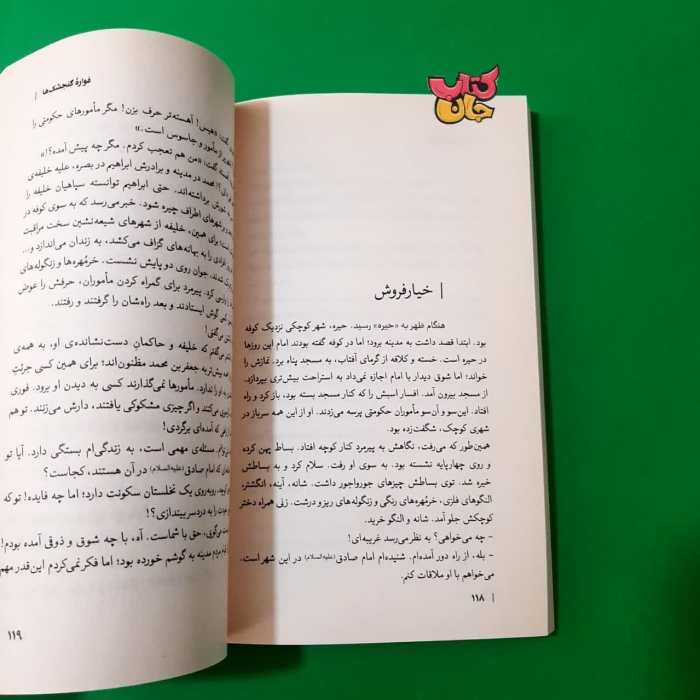 کتاب
جان
| خیارفروش
هنگام ظهر به «حیره» رسید. حیره، شهر کوچکی نزدیک کوفه
بود. ابتدا قصد داشت به مدینه برود؛ اما در کوفه گفته بودند امام این روزها
در حیره است. خسته و کلافه از گرمای آفتاب، به مسجد پناه برد. نمازش را
خواند؛ اما شوق دیدار با امام اجازه نمی‌داد به استراحت بیش‌تری بپردازد.
از مسجد بیرون آمد. افسار اسبش را که کنار مسجد بسته بود، باز کرد و راه
افتاد. این‌سو و آن‌سو مأموران حکومتی پرسه می‌زدند. او از این همه سرباز در
شهری کوچک، شگفت‌زده بود.
همین‌طور که می‌رفت، نگاهش به پیرمرد کنار کوچه افتاد. بساط پهن کرده
و روی چهارپایه نشسته بود. به سوی او رفت. سلام کرد و به بساطش
خیره شد. توی بساطش چیزهای جورواجور داشت. شانه، آینه، انگشتر،
النگوهای فلزی، خرمُهره‌های رنگی و زنگوله‌های ریز و درشت. زنی همراه دختر
کوچکش جلو آمد. شانه و النگو خرید.
- چه می‌خواهی؟ به نظر می‌رسد غریبه‌ای!
- بله، از راه دور آمده‌ام. شنیده‌ام امام صادق(علیه‌السلام) در این شهر است.
می‌خواهم با او ملاقات کنم.
۱۱۸ |
فوارهٔ گنجشک‌ها |
گفت: «هیس! آهسته‌تر حرف بزن! مگر مأمورهای حکومتی را
از مأمور و جاسوس است.»
گفت: «من هم تعجب کردم. مگر چه پیش آمده؟!»
محمد در مدینه و برادرش ابراهیم در بصره، علیه خلیفه‌ی
شورش برداشته‌اند. حتی ابراهیم توانسته سپاهیان خلیفه را
شهرهای اطراف چیره شود. خبر می‌رسد که به سوی کوفه در
برای همین، خلیفه از شهرهای شیعه‌نشین سخت مراقبت
افرادی را به بهانه‌های گزاف می‌کشد، به زندان می‌اندازد و...
شدند. جوان روی دو پایش نشست. خرمُهره‌ها و زنگوله‌های
کرد. پیرمرد برای گمراه کردن مأموران، حرفش را عوض
گوش ایستادند و بعد راه‌شان را گرفتند و رفتند.
می‌گفتی!
می‌گفتم که خلیفه و حاکمانِ دست‌نشانده‌ی او، به همه‌ی
بیش‌تر به جعفر بن محمد مظنون‌اند؛ برای همین کسی جرئتِ
را ندارد. مأمورها نمی‌گذارند کسی به دیدن او برود. فوری
می‌کنند و اگر چیزی مشکوکی یافتند، دارش می‌زنند. تو هم
که آمده‌ای برگردی!
مسئله‌ی مهمی است، به زندگی‌ام بستگی دارد. آیا تو
که امام صادق(علیه‌السلام) در آن هستند، کجاست؟
روبه‌روی یک نخلستان سکونت دارد؛ اما چه فایده! تو که
را به دردسر بیندازی؟!
می‌گویی، حق با شماست. آه، با چه شوق و ذوقی آمده بودم!
مردم مدینه به گوشم خورده بود؛ اما فکر نمی‌کردم این‌قدر مهم
۱۱۹